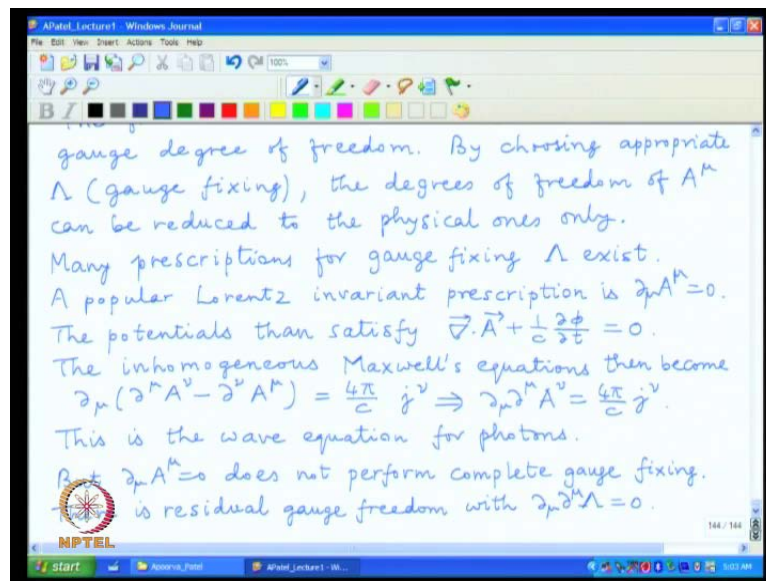 APatel_Lecture1 - Windows Journal
File Edit View Insert Actions Tools Help
100%
B I
gauge degree of freedom. By choosing appropriate
Λ (gauge fixing), the degrees of freedom of A^μ
can be reduced to the physical ones only.
Many prescriptions for gauge fixing Λ exist.
A popular Lorentz invariant prescription is ∂_μA^μ=0.
The potentials than satisfy ∇⃗.A⃗ + 1/c ∂φ/∂t = 0.
The inhomogeneous Maxwell's equations then become
∂_μ(∂^μA^ν − ∂^νA^μ) = 4π/c j^ν ⇒ ∂_μ∂^μA^ν = 4π/c j^ν.
This is the wave equation for photons.
But ∂_μA^μ=0 does not perform complete gauge fixing.
is residual gauge freedom with ∂_μ∂^μΛ=0.
144 / 144
NPTEL
start Apoorva_Patel APatel_Lecture1 - Wi... 5:03 AM